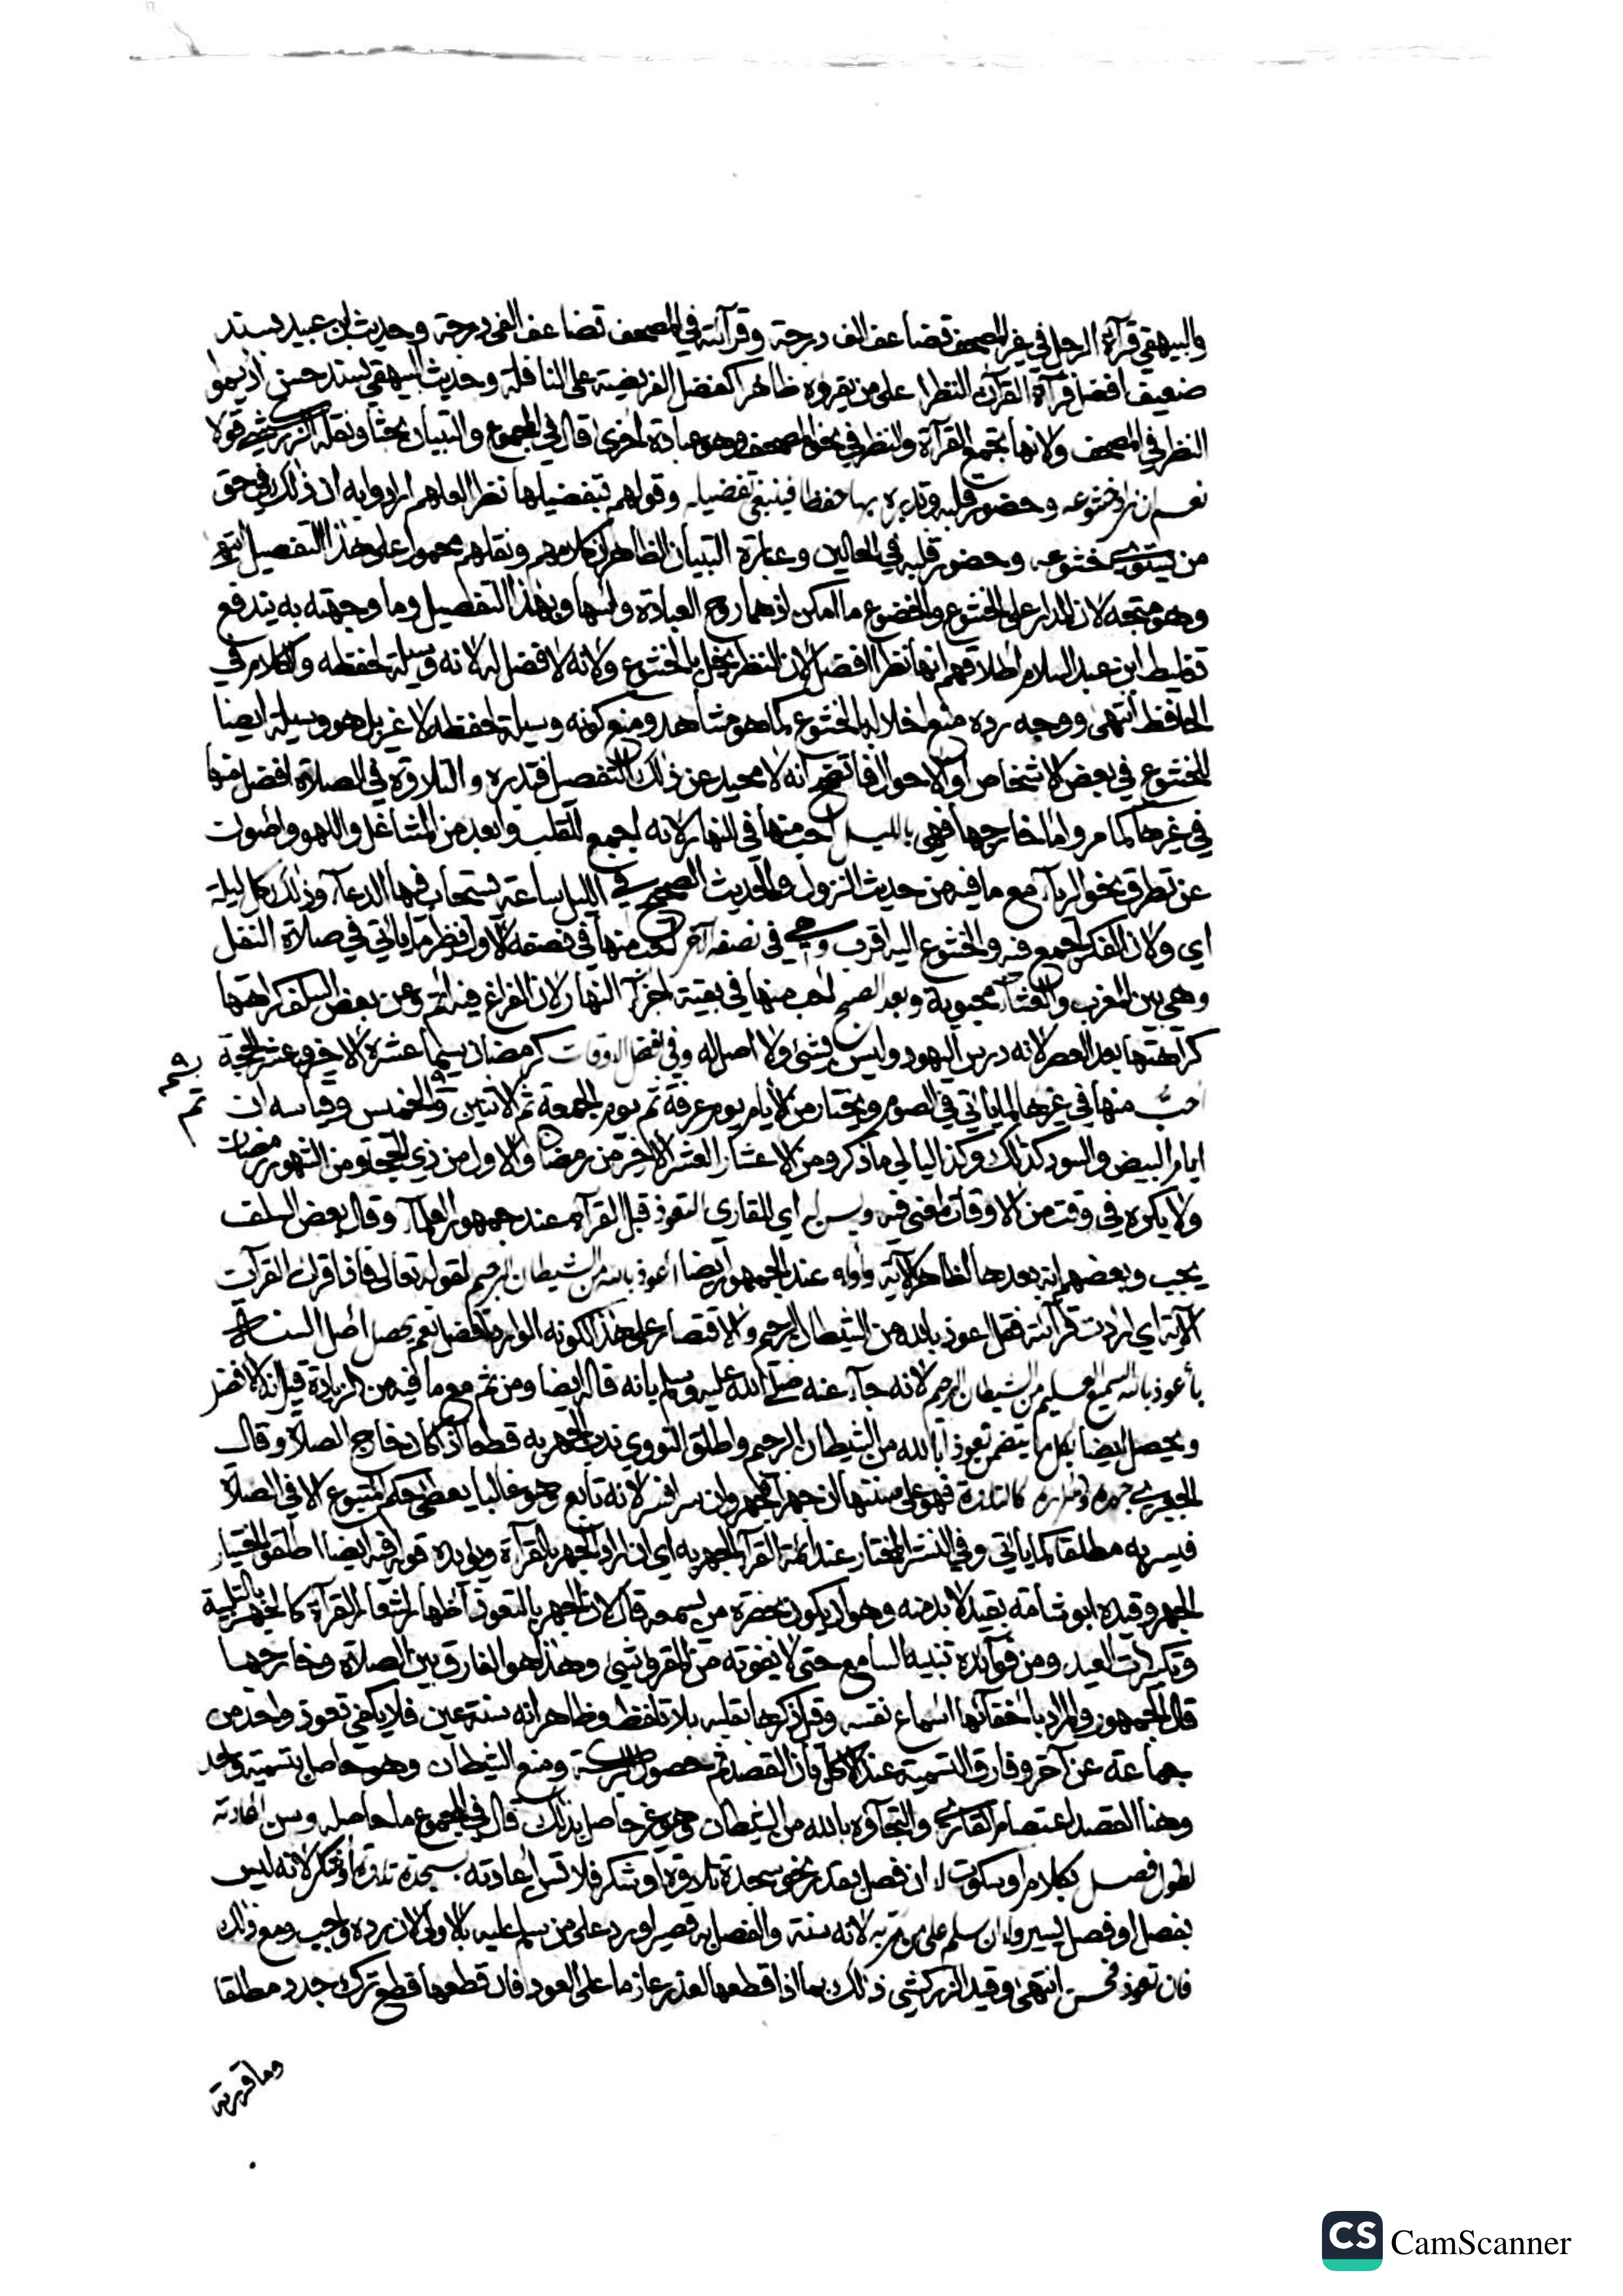 والبيهقي قرآة الرجل في غير المصحف تضاعف الف درجة وقرآئته في المصحف تضاعف الفي درجة وحديث ابي عبيد بسند
ضعيف افضل قرآة القرآن النظرا على من يقروه ظاهرا كفضل الفريضة على النافلة وحديث البيهقي بسند حسن اديموا
النظر في المصحف ولانها تجمع القرآة والنظر في نحو المصحف وهو عبادة اخرى قال في المجموع والتبيان بحثا ونقله الزركشي قولا
نعم ان زاد خشوعه وحضور قلبه وتدبره بها حفظا فينبغي تفضيله وقولهم بتفضيلها نظرا لعلهم ارادوا به ان ذلك في حق
من يستوي خشوعه وحضور قلبه في الحالين وعبارة التبيان الظاهر ان كلامهم ونقلهم محمول على هذا التفصيل انتهى
وهو متجه لان المدار على الخشوع والخضوع ما امكن اذ هما روح العبادة واسها وبهذا التفصيل وما وجهته به يندفع
تغليط ابن عبد السلام اطلاقهم انها نظرا افضل لان النظر يخل بالخشوع ولانه لا فضل له لانه وسيلة لحفظه والكلام في
الحافظ انتهى ووجه رده منع اخلاله بالخشوع كما هو مشاهد ومنع كونه وسيلة لحفظه لا غير بل هو وسيلة ايضا
للخشوع في بعض الاشخاص او الاحوال فاتضح انه لا محيد عن ذلك التفصيل فتدبره والتلاوة في الصلاة افضل منها
في غيرها كما مر واما خارجها فهي بالليل احب منها في النهار لانه اجمع للقلب وابعد من المشاغل واللهو واصون
عن تطرق نحو الريآء مع ما فيه من حديث النزول والحديث الصحيح في الليل ساعة يستجاب فيها الدعآء وذلك كل ليلة
اي ولان الفكر اجمع فيه والخشوع اليه اقرب وهي في نصفه آخر احب منها في نصفه الاول نظير ما ياتي في صلاة النفل
وهي بين المغرب والعشآء محبوبة وبعد الصبح احب منها في بقية اجزآء النهار لان الفراغ فيه اتم وعن بعض السلف كراهتها
كراهتها بعد العصر لانه درس اليهود وليس بشئ ولا اصل له وفي افضل الاوقات كرمضان سيما عشره الاخير وعشر الحجة
احب منها في غيرها لما ياتي في الصوم ويختار من الايام يوم عرفة ثم يوم الجمعة ثم الاثنين والخميس وقياسه ان
ايام البيض والسود كذلك وكذا ليالي ما ذكر ومن الاعشار العشر الاخير من رمضان والاول من ذي الحجة ومن الشهور رمضان
ولا يكره في وقت من الاوقات لمعنى فيه ويسن له اي للقاري التعوذ قبل القرآة عند جمهور العلمآء وقال بعض السلف
يجب وبعضهم انه بعدها لظاهر الآية واوله عند الجمهور ايضا اعوذ بالله من الشيطان الرجيم لقوله تعالى فاذا قرات القرآن
الآية اي اردت قرآئته فقل اعوذ بالله من الشيطان الرجيم والاقتصار على هذا لكونه الوارد افضل نعم يحصل اصل السنة
بأعوذ بالله السميع العليم من الشيطان الرجيم لانه جآء عنه صلى الله عليه وسلم بانه قاله ايضا ومن ثم مع ما فيه من الزيادة قيل انه الافضل
ويحصل ايضا بكل ما يتضمن تعوذا بالله من الشيطان الرجيم واطلق النووي ندب الجهر به قطعا اذا كان خارج الصلاة وقال
الجعبري كالتلاوة فهو على سنتها ان جهرا فجهر وان سرا فسر لانه تابع وهو غالبا يعطى حكم المتبوع الا في الصلاة
فيسر به مطلقا كما ياتي وفي النشر المختار عند ائمة القرآة الجهر به اي ان اراد الجهر بالقرآة ويؤيده قوله فيه ايضا اطلقوا اختيار
الجهر وقيده ابو شامة بقيد لا بد منه وهو ان يكون بحضرة من يسمعه قال لان الجهر بالتعوذ اظهار لشعار القرآة كالجهر بالتلبية
وتكبيرات العيد ومن فوآئده تنبيه السامع حتى لا يفوته من المقرو شئ وهذا هو الفارق بين الصلاة وخارجها
قال الجمهور والمراد باخفآئها اسماع نفسه وقيل ذكرها بقلبه بلا تلفظ وظاهر انه سنة عين فلا يكفي تعوذ واحد من
جماعة عن آخر وفارق التسمية عند الاكل فان القصد ثم حصول البركة ومنع الشيطان وهو حاصل بتسمية واحد
وهنا القصد اعتصام القارئ والتجآؤه بالله من الشيطان وهو غير حاصل بذلك قال في المجموع ما حاصله ويسن اعادته
لطول فصل بكلام او سكوت ان فصل بعد نحو سجدة تلاوة او شكر فلا تسن اعادته سجدة تلاوة او شكر لانه ليس
بفصل او فصل يسير وان سلم على من مر به لانه سنة والفصل به قصير او رد على من سلم عليه بالاولى لان رده واجب ومع ذلك
فان تعوذ فحسن انتهى وقيد الزركشي ذلك بما اذا قطعها لعذر عازما على العود فان قطعها قطع ترك جدد مطلقا